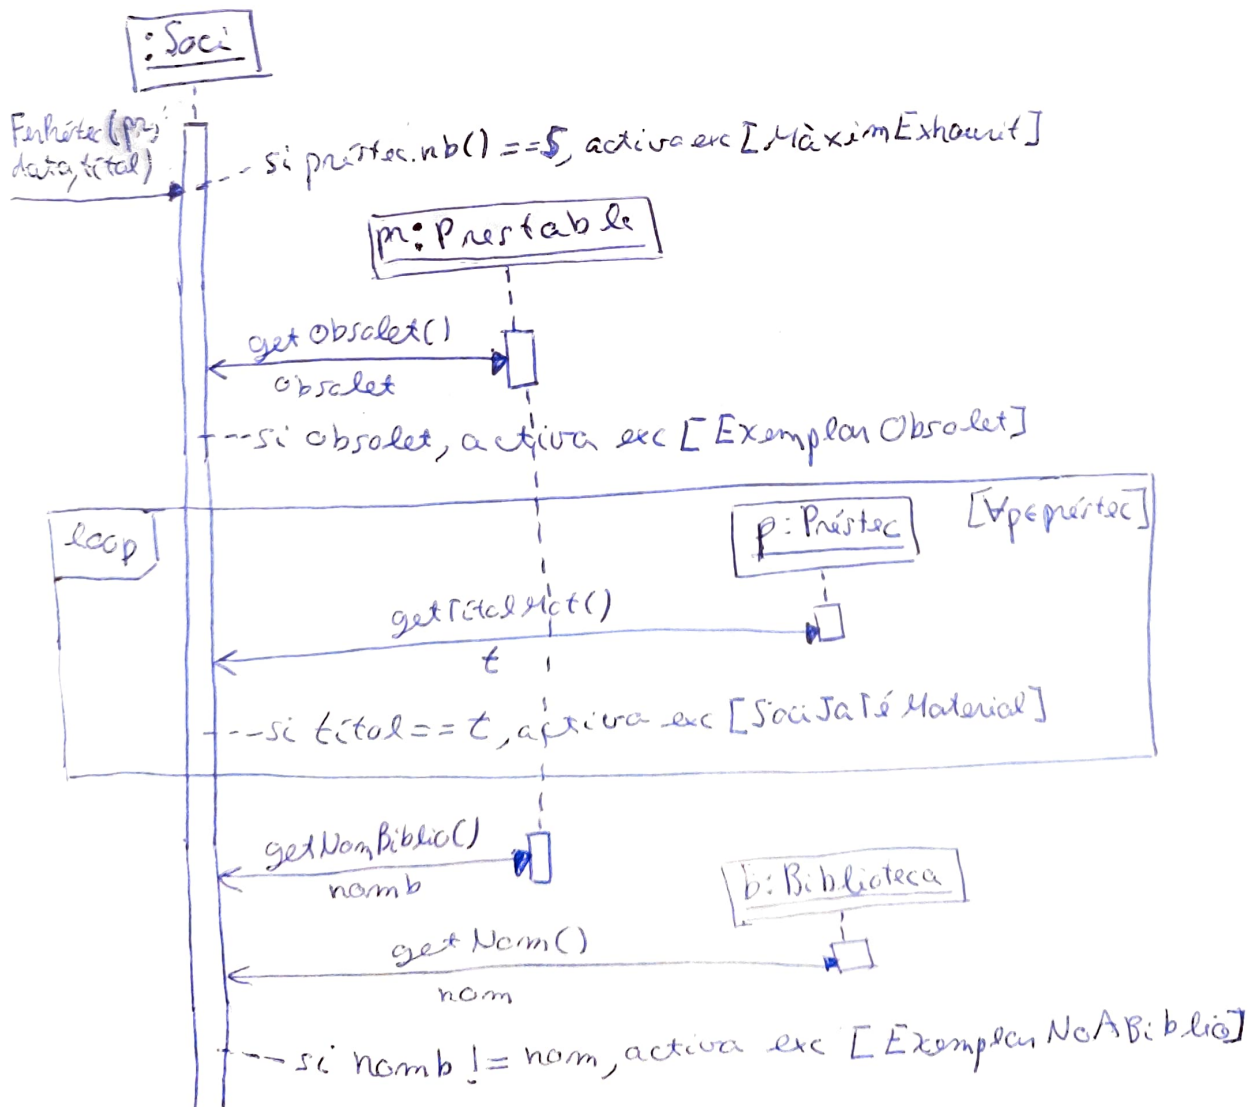 :Soci
FerPréstec(pr,
data, títol)
si préstec.nb() == 5, activa exc [MàximExhaurit]
pr: Prestable
getObsolet()
obsolet
si obsolet, activa exc [ExemplarObsolet]
loop
p: Préstec
[∀p∈préstec]
getTítolMat()
t
si títol == t, activa exc [SociJaTéMaterial]
getNomBiblio()
nomb
b: Biblioteca
getNom()
nom
si nomb != nom, activa exc [ExemplarNoABiblio]